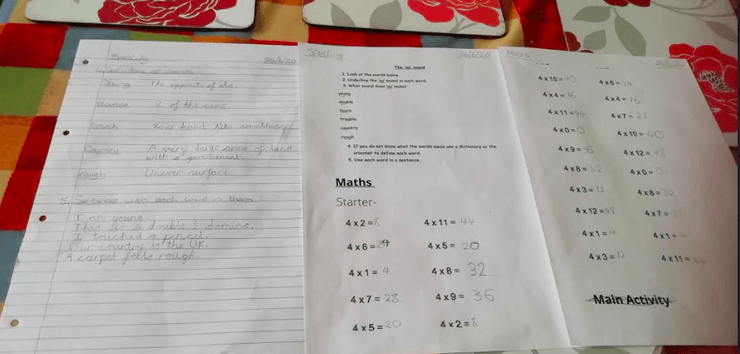 Spelling 26/6/20
Young The opposite of old.
Double 2 of the same
Touch Your hand felt something
Country A very large area of land
with a government.
Rough Uneven surface.
5. Sentences with each word in them
I am young
This is a double 3 domino.
I touched a pencil.
Our country is the UK.
A carpet feels rough
Spelling 26/6/20
1. Look at the words below.
2. Underline the 'ou' sound in each word.
3. What sound does 'ou' make?
young
double
touch
trouble
country
rough
4. If you do not know what the words mean use a dictionary or the
internet to define each word.
5. Use each word in a sentence.
Maths
Starter-
4 x 2 = 8 4 x 11 = 44
4 x 6 = 24 4 x 5 = 20
4 x 1 = 4 4 x 8 = 32
4 x 7 = 28 4 x 9 = 36
4 x 5 = 20 4 x 2 = 8
Maths
4 x 10 = 4 x 6 = 24
4 x 4 = 16 4 x 4 = 16
4 x 11 = 44 4 x 7 =
4 x 0 = 0 4 x 10 = 40
4 x 9 = 4 x 12 =
4 x 8 = 32 4 x 0 =
4 x 3 = 12 4 x 8 = 32
4 x 12 = 4 x 7 =
4 x 1 = 4 4 x 1 =
4 x 3 = 12 4 x 11 =
Main Activity